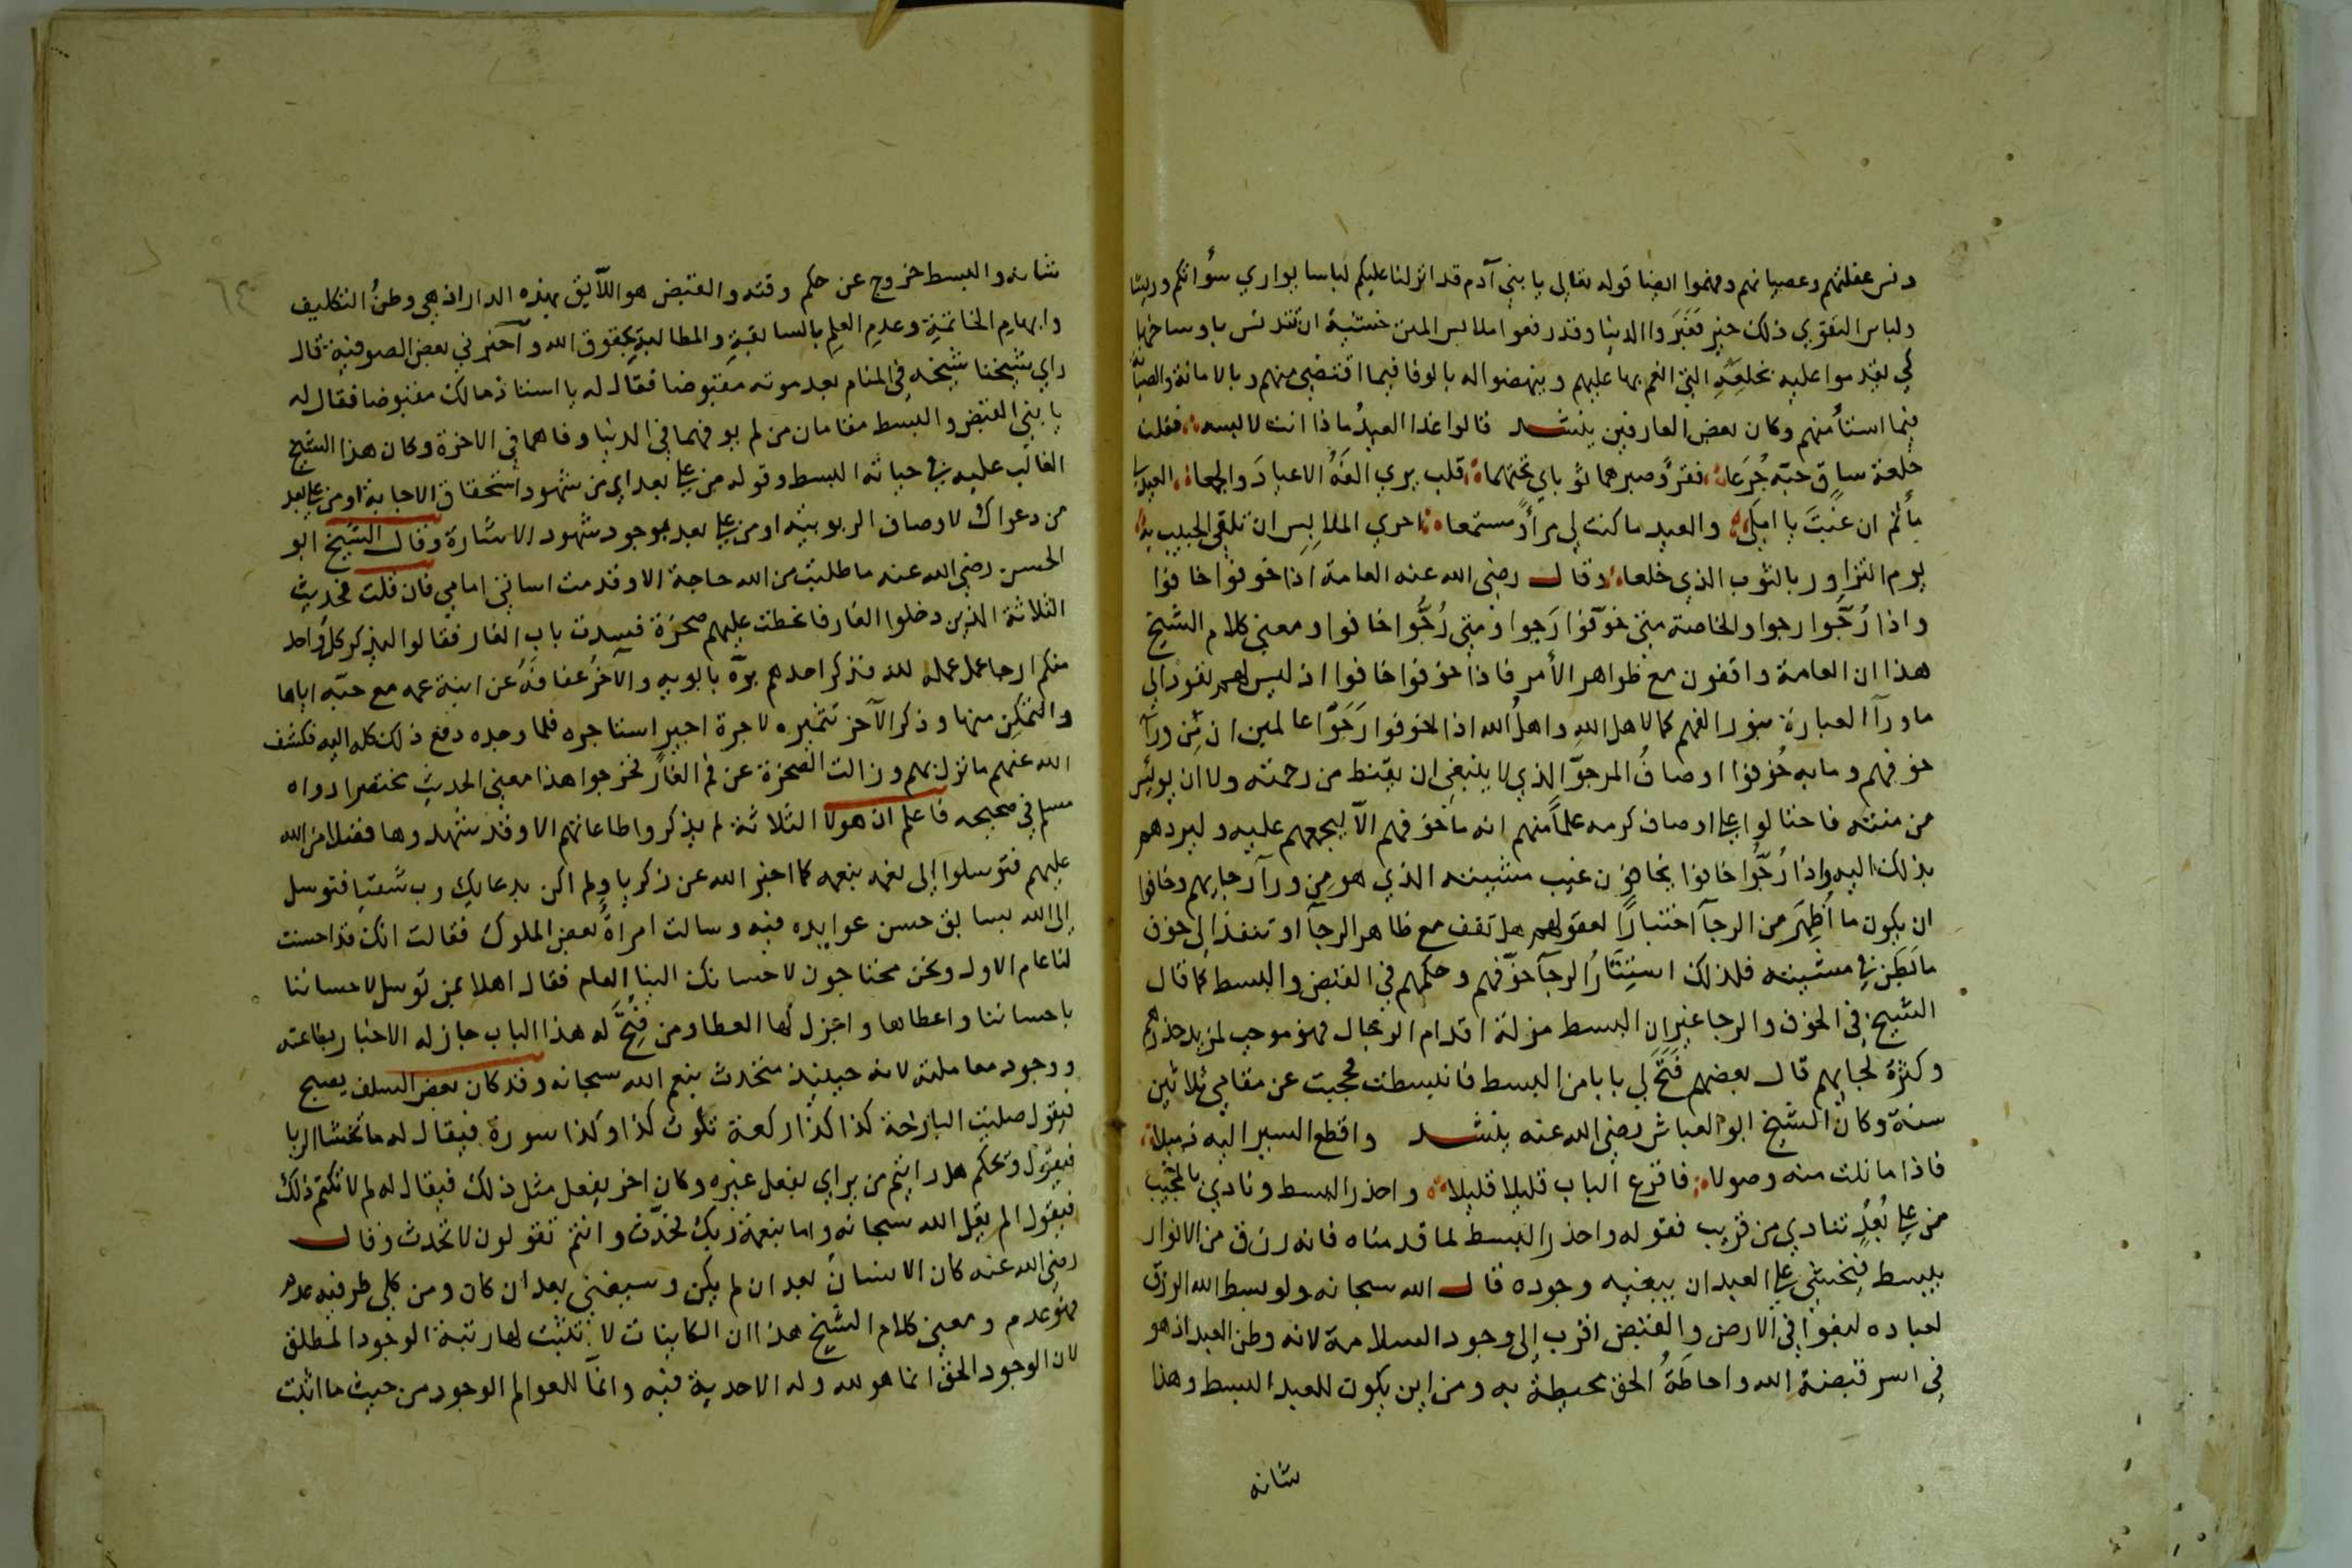 دنس غفلتهم وعصيانهم وفهموا ايضا قوله تعالى يا بني آدم قد انزلنا عليكم لباسا يواري سؤاتكم وريشا
ولباس التقوى ذلك خير فعبروا الدنيا وقد رفعوا ملابس المنن خشية ان تتدنس باوساخها
كي يقدموا عليه بخلعه التي انعم بها عليهم وينهضوا له بالوفا فيما اقتضى منهم وبالامانة والصيانة
فيما استأمنهم وكان بعض العارفين ينشد قالوا غدا العيد ماذا انت لابسه فقلت
خلعة ساق حبّه جُرَعا فقرٌ وصبر هما ثوباي تحتهما قلب يرى الفَه الاعيادَ والجمعا العيد لي
مأتم ان غبتَ يا املي والعيد ما كنت لي مرأً ومستمعا احرى الملابس ان تلقى الحبيب به
يوم التزاور بالثوب الذي خلعا وقال رضي الله عنه العامة اذا خوفوا خافوا
واذا رُجّوا رجوا والخاصة متى خوّفوا رَجوا ومتى رُجّوا خافوا ومعنى كلام الشيخ
هذا ان العامة واقفون مع ظواهر الأمر فاذا خوفوا خافوا اذ ليس لهم نفوذ الى
ما ورآ العبارة بنور الفهم كما لاهل الله واهل الله اذا خوفوا رَجَوا عالمين ان مِن ورآ
خوفهم وما به خُوِّفوا اوصافُ المرجوّ الذي لا ينبغي ان يقنط من رحمته ولا ان يوئس
من منته فاحتالوا على اوصاف كرمه علماً منهم انه ما خوفهم الّا ليجمعهم عليه وليردهم
بذلك اليه واذا رُجّوا خافوا يخافون غيب مشيئته الذي هو مِن ورآ رجايهم وخافوا
ان يكون ما اُظهِرَ من الرجآ اختباراً لعقولهم هل تقف مع ظاهر الرجآ او تنفذ الى خوف
ما بَطَن في مشيئته فلذلك استثار الرجآ خوفهم وحكمهم في القبض والبسط كما قال
الشيخ في الخوف والرجا غير ان البسط مزلة اقدام الرجال فهو موجب لمزيد حذرهم
وكثرة لجايهم قال بعضهم فُتِحَ لي بابا من البسط فانبسطت فحجبت عن مقامي ثلاثين
سنة وكان الشيخ ابو العباس رضي الله عنه ينشد واقطع السير اليه ذميلا
فاذا ما نلت منه وصولا فاقرع الباب قليلا قليلا واحذر البسط ونادي بالمجيب
من على بُعدٍ تنادي من قريب فقوله واحذر البسط لما قدمناه فانه رزق من الانوار
يبسط فيخشى على العبد ان يبغيه وجوده قال الله سبحانه ولو بسط الله الرزق
لعباده لبغوا في الارض والقبض اقرب إلى وجود السلامة لانه وطن العبد اذ هو
في اسر قبضة الله واحاطةُ الحق محيطة به ومن اين يكون للعبد البسط وهذا
شانه
٦٤
شانه والبسط خروج عن حكم وقته والقبض هو اللآيق بهذه الدار اذ هي وطنُ التكليف
وابهام الخاتمة وعدم العلم بالسابقة والمطالبة بحقوق الله واخبرني بعض الصوفية قال
راي شيخنا شيخه في المنام بعد موته مقبوضا فقال له يا استاذ مالك مقبوضا فقال له
يا بني القبض والبسط مقامان من لم يوفهما في الدنيا وفاهما في الاخرة وكان هذا الشيخ
الغالب عليه في حياته البسط وقوله من على بعد اي من شهود استحقاق الاجابة او من على بعد
من دعواك لاوصاف الربوبية او من على بعد بموجود شهود الاشارة وقال الشيخ ابو
الحسن رضي الله عنه ما طلبت من الله حاجة الا وقدمت اساتي امامي فان قلت فحديث
الثلاثة الذين دخلوا الغار فانحطت عليهم صخرة فسدت باب الغار فقالوا ليذكر كل واحد
منكم ارجا عمل عمله لله فذكر احدهم برّه بابويه والآخر عفافَه عن ابنة عمه مع حبّه اياها
والتمكن منها وذكر الآخر تثميره لاجرة اجير استاجره فلما وجده دفع ذلك كله اليه فكشف
الله عنهم ما نزل بهم وزالت الصخرة عن فم الغار فخرجوا هذا معنى الحديث مختصرا رواه
مسلم في صحيحه فاعلم ان هولا الثلاثة لم يذكروا طاعاتهم الا وقد شهدوها فضلا من الله
عليهم فتوسلوا إلى نعمه بنعمه كما اخبر الله عن زكريا ولم اكن بدعايك رب شقيا فتوسل
إلى الله بسابق حسن عوايده فيه وسالت امراةٌ بعض الملوك فقالت انك قد احسنت
لنا عام الاول ونحن محتاجون لاحسانك الينا العام فقال اهلا بمن توسل لاحساننا
باحساننا واعطاها واجزل لها العطا ومن فُتِحَ له هذا الباب جاز له الاخبار بطاعته
ووجود معاملته لانه حينيذ متحدث بنعم الله سبحانه وقد كان بعض السلف يصبح
فيقول صليت البارحة كذا كذا ركعة تلوت كذا وكذا سورة فيقال له ما تخشا الريا
فيقول ويحكم هل رايتم من يراي بفعل غيره وكان اخر يفعل مثل ذلك فيقال له لم لا تكتم ذلك
فيقول الم يقل الله سبحانه واما بنعمة ربك فحدّث وانتم تقولون لا تحدث وقال
رضي الله عنه كان الانسان بعد ان لم يكن وسيفنى بعد ان كان ومن كلي طرفيه عدم
فهو عدم ومعنى كلام الشيخ هذا ان الكاينات لا تثبت لها رتبة الوجود المطلق
لان الوجود الحق انما هو لله وله الاحدية فيه وانما للعوالم الوجود من حيث ما اثبت